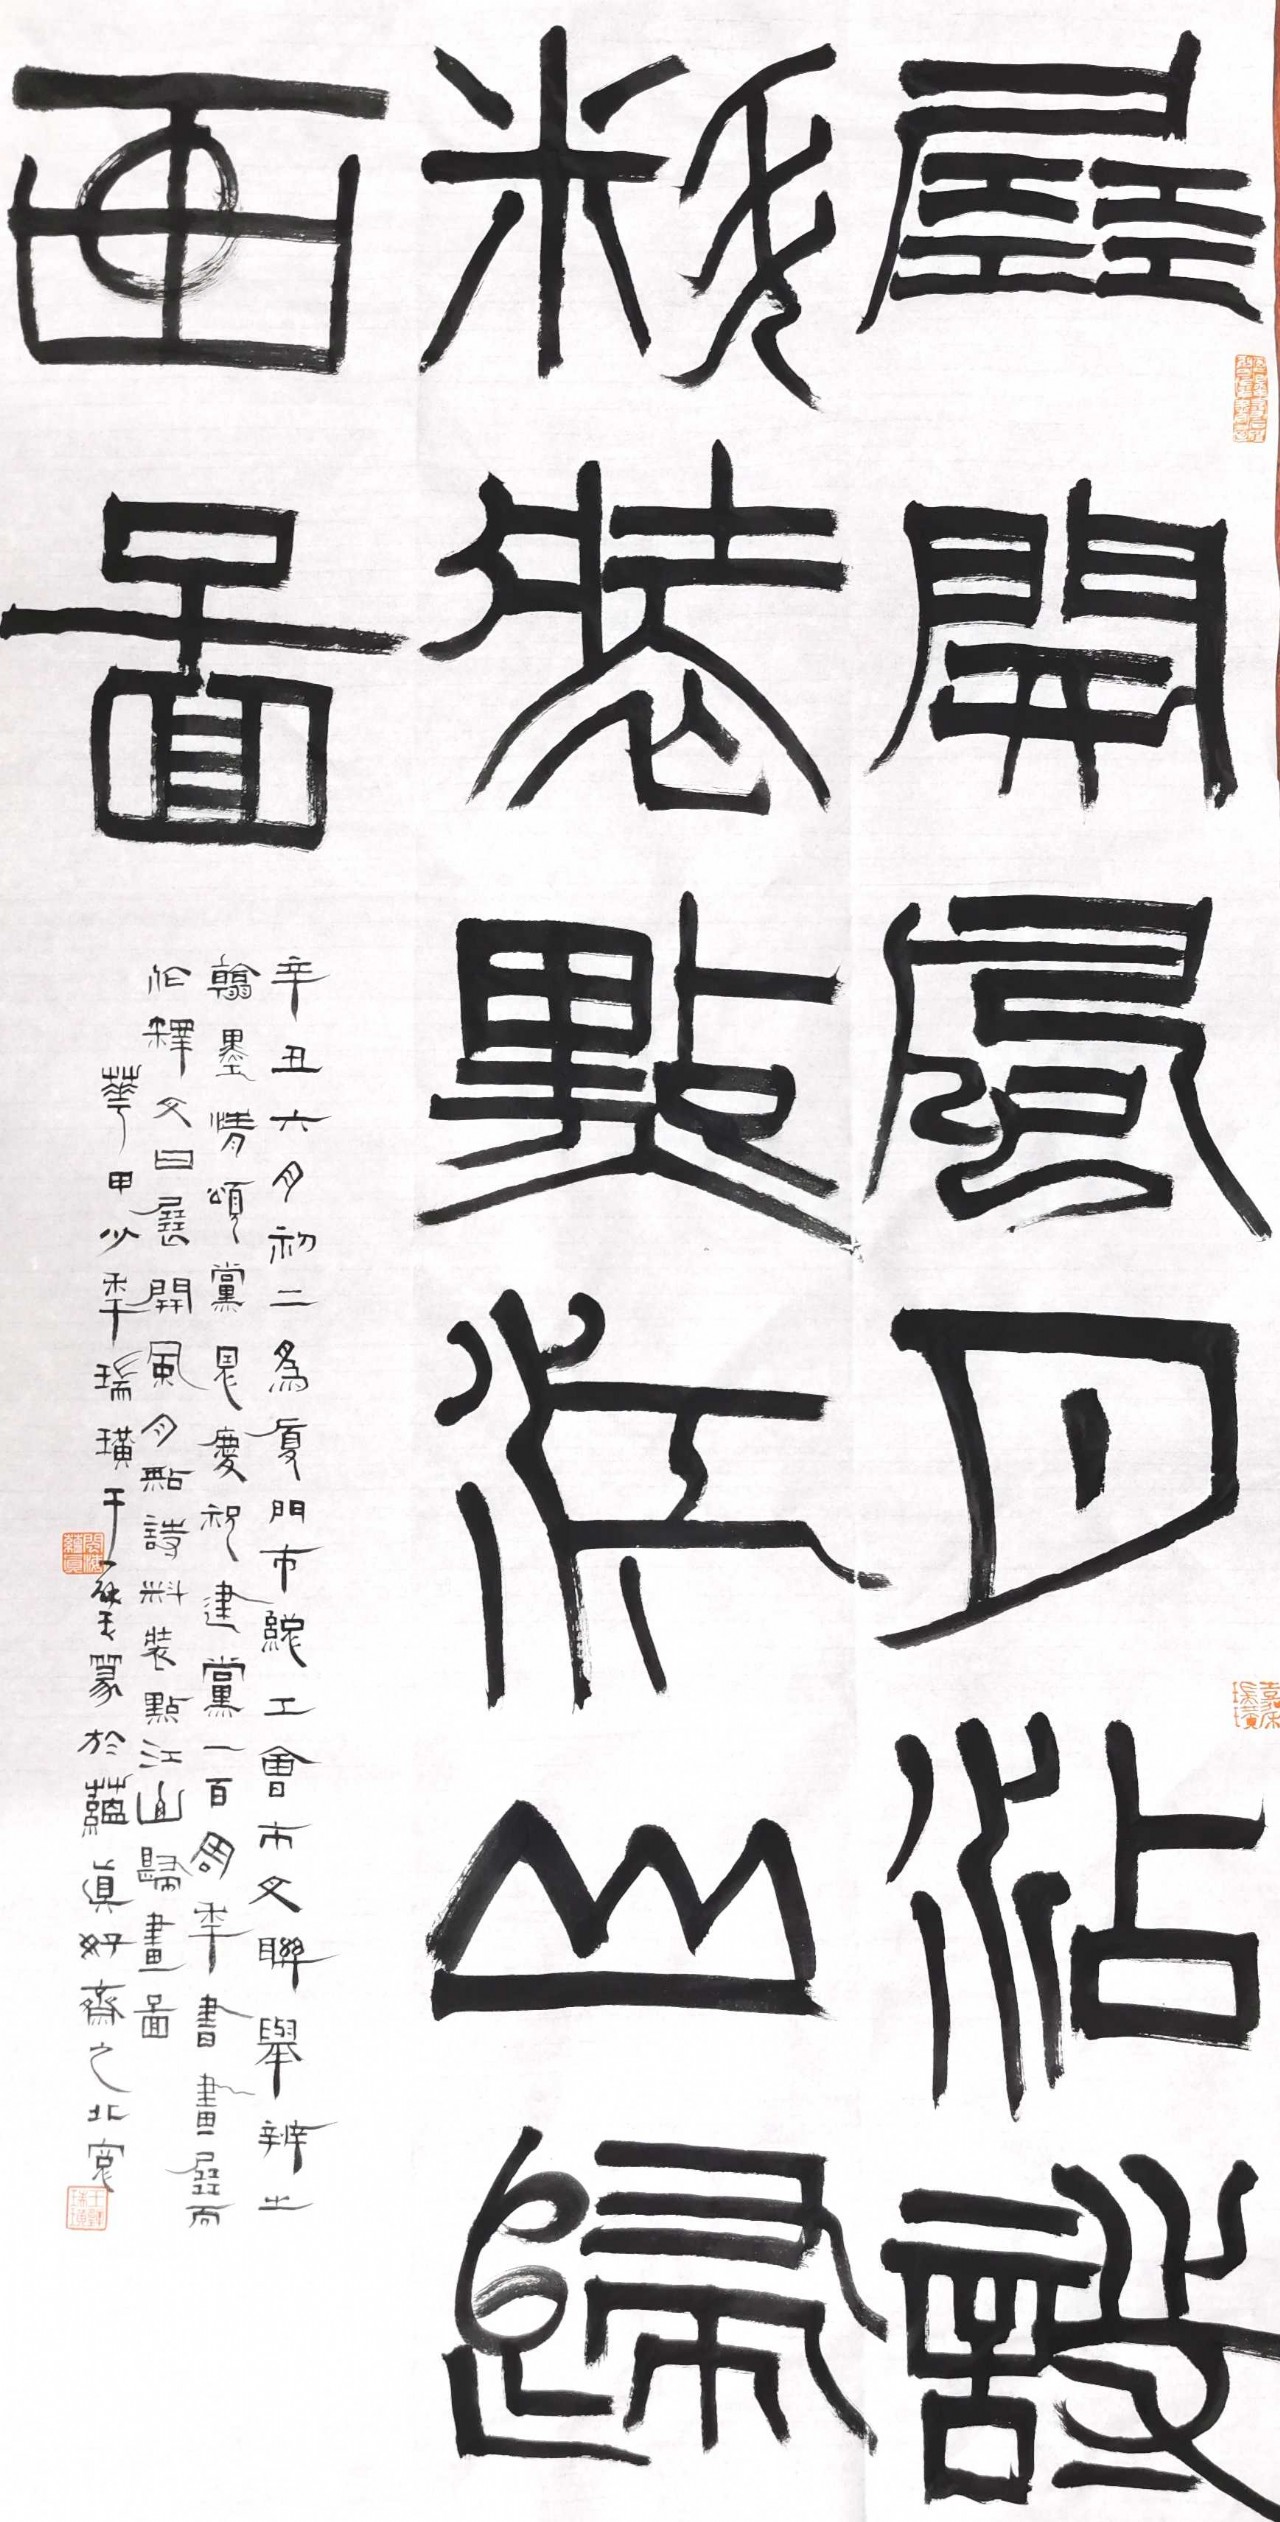 展開風月沾詩
料裝點江山歸
畫圖
辛丑六月初二為廈門市總工會市文聯舉辦之
翰墨情頌黨恩慶祝建黨一百周年書畫展而
作釋文曰展開風月點詩料裝點江山歸畫圖
華甲少年瑞璜于篆於蘊真好齋之北窗